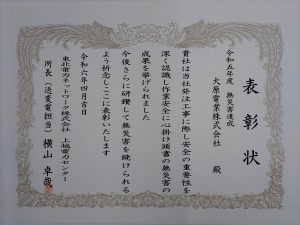 表彰状
令和五年度 無災害達成
大原電業株式会社 殿
貴社は当社発注工事に際し安全の重要性を
深く認識し作業安全に心掛け頭書の無災害の
成果を挙げられました
今後さらに研鑽して無災害を続けられる
よう祈念しここに表彰いたします
令和六年四月吉日
東北電力ネットワーク株式会社 上越電力センター
所長(送変電担当) 横山 卓哉